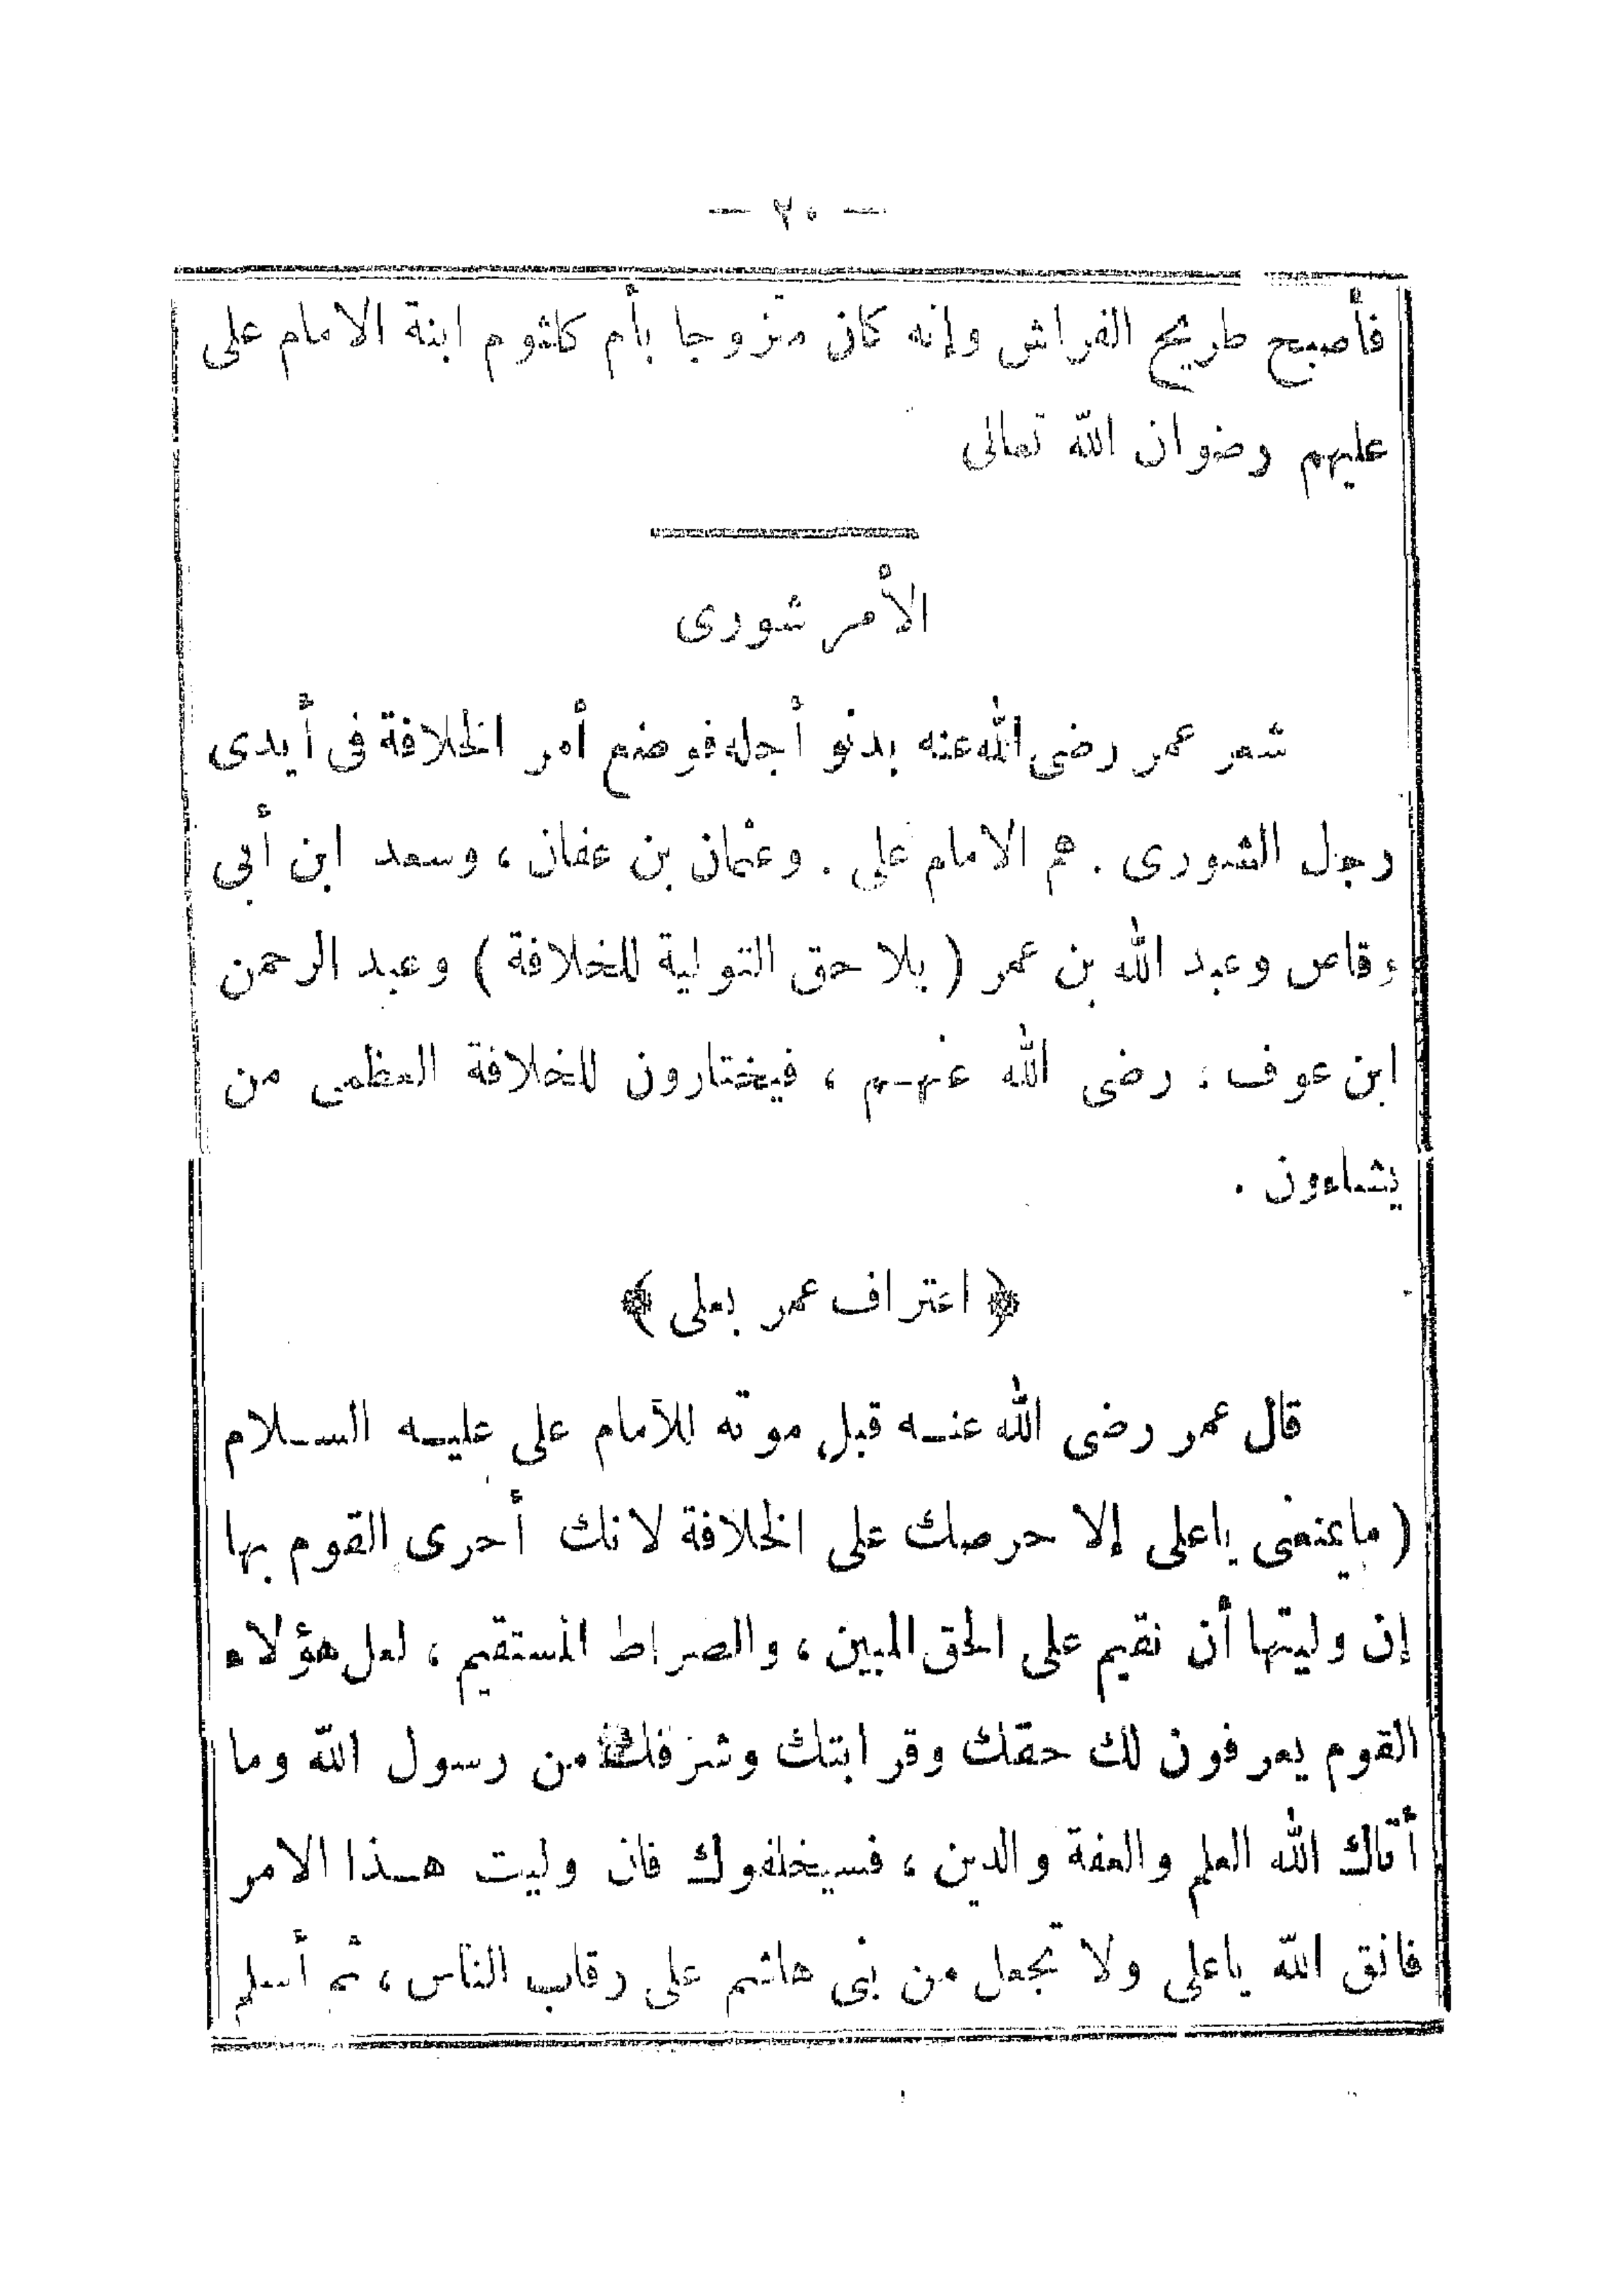 — ٢٠ —
فأصبح طريح الفراش وإنه كان متزوجا بأم كلثوم ابنة الامام على
عليهم رضوان الله تعالى
الأمر شورى
شعر عمر رضى الله عنه بدنو أجله فوضع أمر الخلافة فى أيدى
رجل الشورى . هم الامام على . وعثمان بن عفان ، وسعد ابن أبي
وقاص وعبد الله بن عمر ( بلا حق التولية للخلافة ) وعبد الرحمن
ابن عوف : رضى الله عنهم ، فيختارون للخلافة العظمى من
يشاءون .
﴿ اعتراف عمر بعلى ﴾
قال عمر رضى الله عنه قبل موته للأمام على عليه السلام
( مايمنعنى ياعلى إلا حرصك على الخلافة لانك أحرى القوم بها
إن وليتها أن نقيم على الحق المبين ، والصراط المستقيم ، لعل هؤلاء
القوم يعرفون لك حقك وقرابتك وشرفك من رسول الله وما
أتاك الله العلم والعفة والدين ، فسيخلفوك فان وليت هذا الامر
فاتق الله ياعلى ولا تجعل من بنى هاشم على رقاب الناس ، ثم أسلم